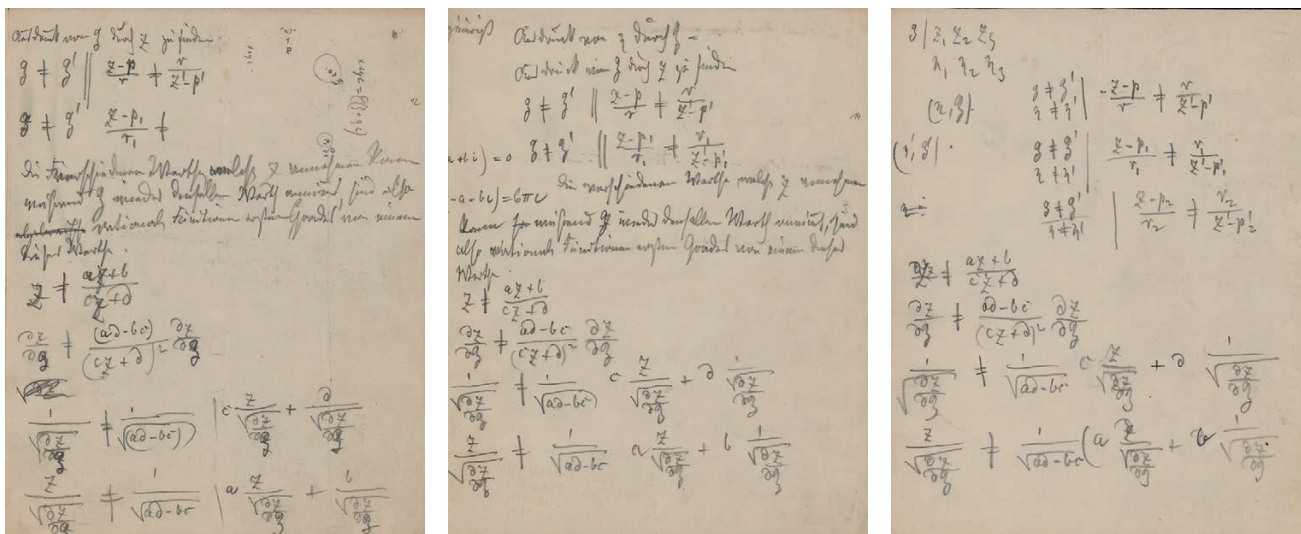 Ausdruck von ʒ durch z zu finden
ʒ ≠ ʒ' || (z-p)/r ≠ r/(z'-p')
ʒ ≠ ʒ' (z-p₁)/r₁ ≠
Die verschiedenen Werthe welche z annehmen kann
während ʒ wieder denselben Werth annimmt, sind also
rationale Functionen ersten Grades von einem
dieser Werthe
z ≠ (az+b)/(cz+d)
∂z/∂ʒ ≠ (ad-bc)/(cz+d)² ∂z/∂ʒ
1/√(∂z/∂ʒ) ≠ 1/√(ad-bc) | c z/√(∂z/∂ʒ) + d/√(∂z/∂ʒ)
z/√(∂z/∂ʒ) ≠ 1/√(ad-bc) | a z/√(∂z/∂ʒ) + b/√(∂z/∂ʒ)
Ausdruck von z durch ʒ –
Ausdruck von ʒ durch z zu finden
ʒ ≠ ʒ' || (z-p)/r ≠ r/(z'-p')
a+bi) = 0 ʒ ≠ ʒ' || (z-p₁)/r₁ ≠ r₁/(z'-p₁')
Die verschiedenen Werthe welche z annehmen
kann während ʒ wieder denselben Werth annimmt, sind
also rationale Functionen ersten Grades von einem dieser
Werthe
z ≠ (az+b)/(cz+d)
∂z/∂ʒ ≠ (ad-bc)/(cz+d)² ∂z/∂ʒ
1/√(∂z/∂ʒ) ≠ 1/√(ad-bc) c z/√(∂z/∂ʒ) + d 1/√(∂z/∂ʒ)
z/√(∂z/∂ʒ) ≠ 1/√(ad-bc) a z/√(∂z/∂ʒ) + b 1/√(∂z/∂ʒ)
ʒ | z₁ z₂ z₃
r₁ r₂ r₃
(r,ʒ) ʒ ≠ ʒ' r ≠ r' | (z-p)/r ≠ r/(z'-p')
(r',ʒ') ʒ ≠ ʒ' r ≠ r' | (z-p₁)/r₁ ≠ r₁/(z'-p₁')
ʒ ≠ ʒ' r ≠ r' | (z-p₂)/r₂ ≠ r₂/(z'-p'₂)
z ≠ (az+b)/(cz+d)
∂z/∂ʒ ≠ (ad-bc)/(cz+d)² ∂z/∂ʒ
1/√(∂z/∂ʒ) ≠ 1/√(ad-bc) c z/√(∂z/∂ʒ) + d 1/√(∂z/∂ʒ)
z/√(∂z/∂ʒ) ≠ 1/√(ad-bc) (a z/√(∂z/∂ʒ) + b 1/√(∂z/∂ʒ)